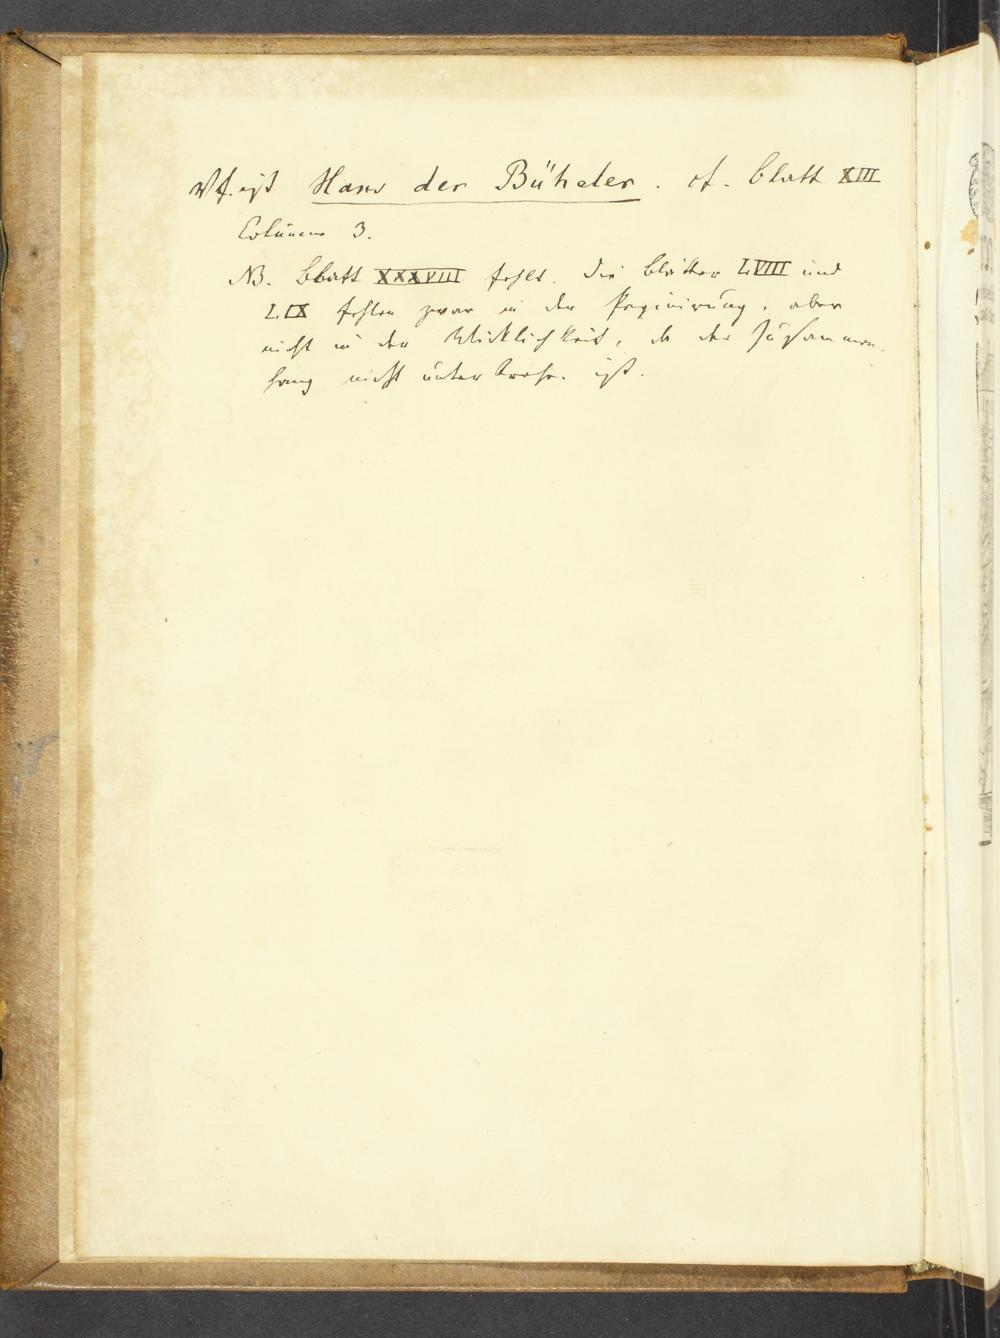 Vf. ist Hans der Büheler. cf. Blatt XIII
Columne 3.
NB. Blatt XXXVIII fehlt. Die Blätter LVIII und
LIX fehlen zwar in der Paginirung, aber
nicht in der Wirklichkeit, da der Zusammen-
hang nicht unterbroch. ist.